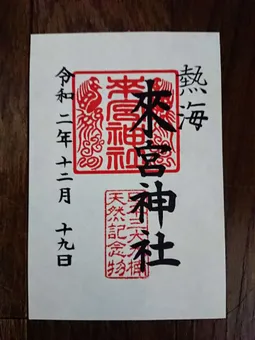 熱海
來宮神社
来宮神社
天然記念物
令和二年十二月十九日